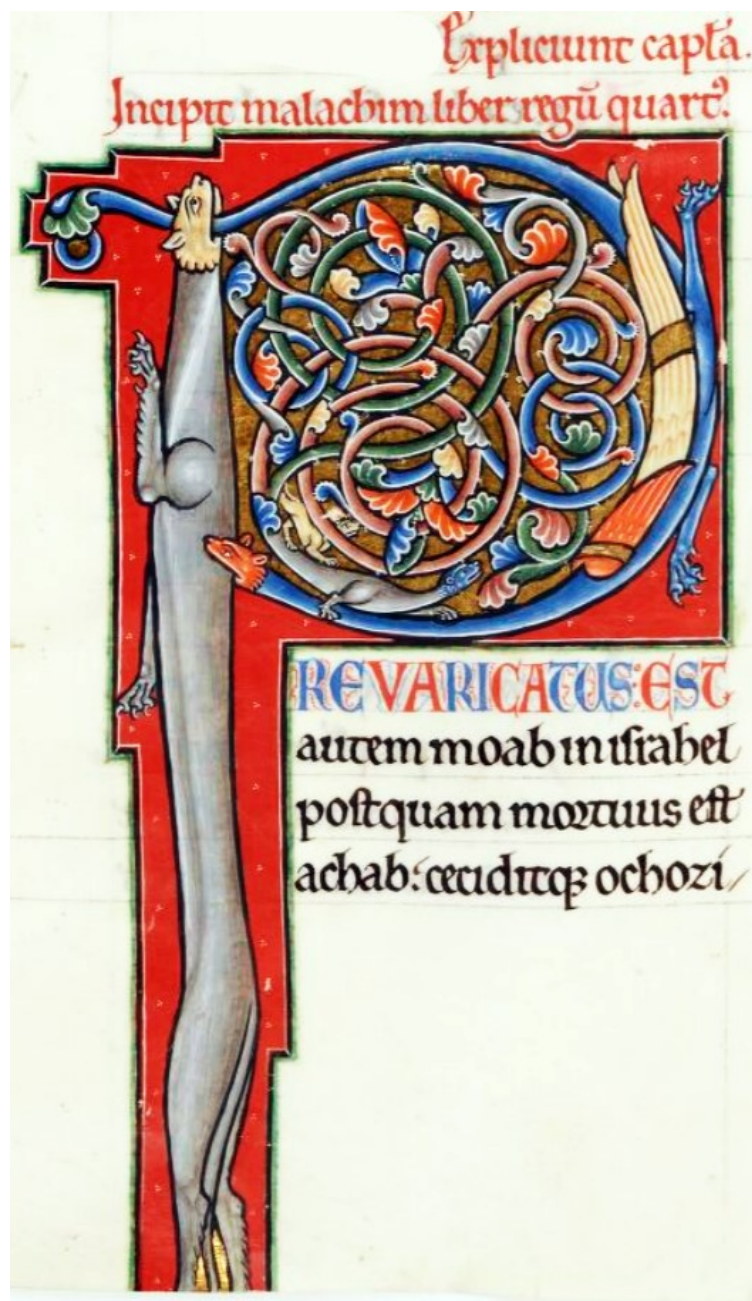 Expliciunt capƚa.
Incipit malachim liber regū quartꝰ.
PREVARICATUS: EST
autem moab in iſrahel
poſtquam mortuus eſt
achab: ceciditqꝫ ochozi/